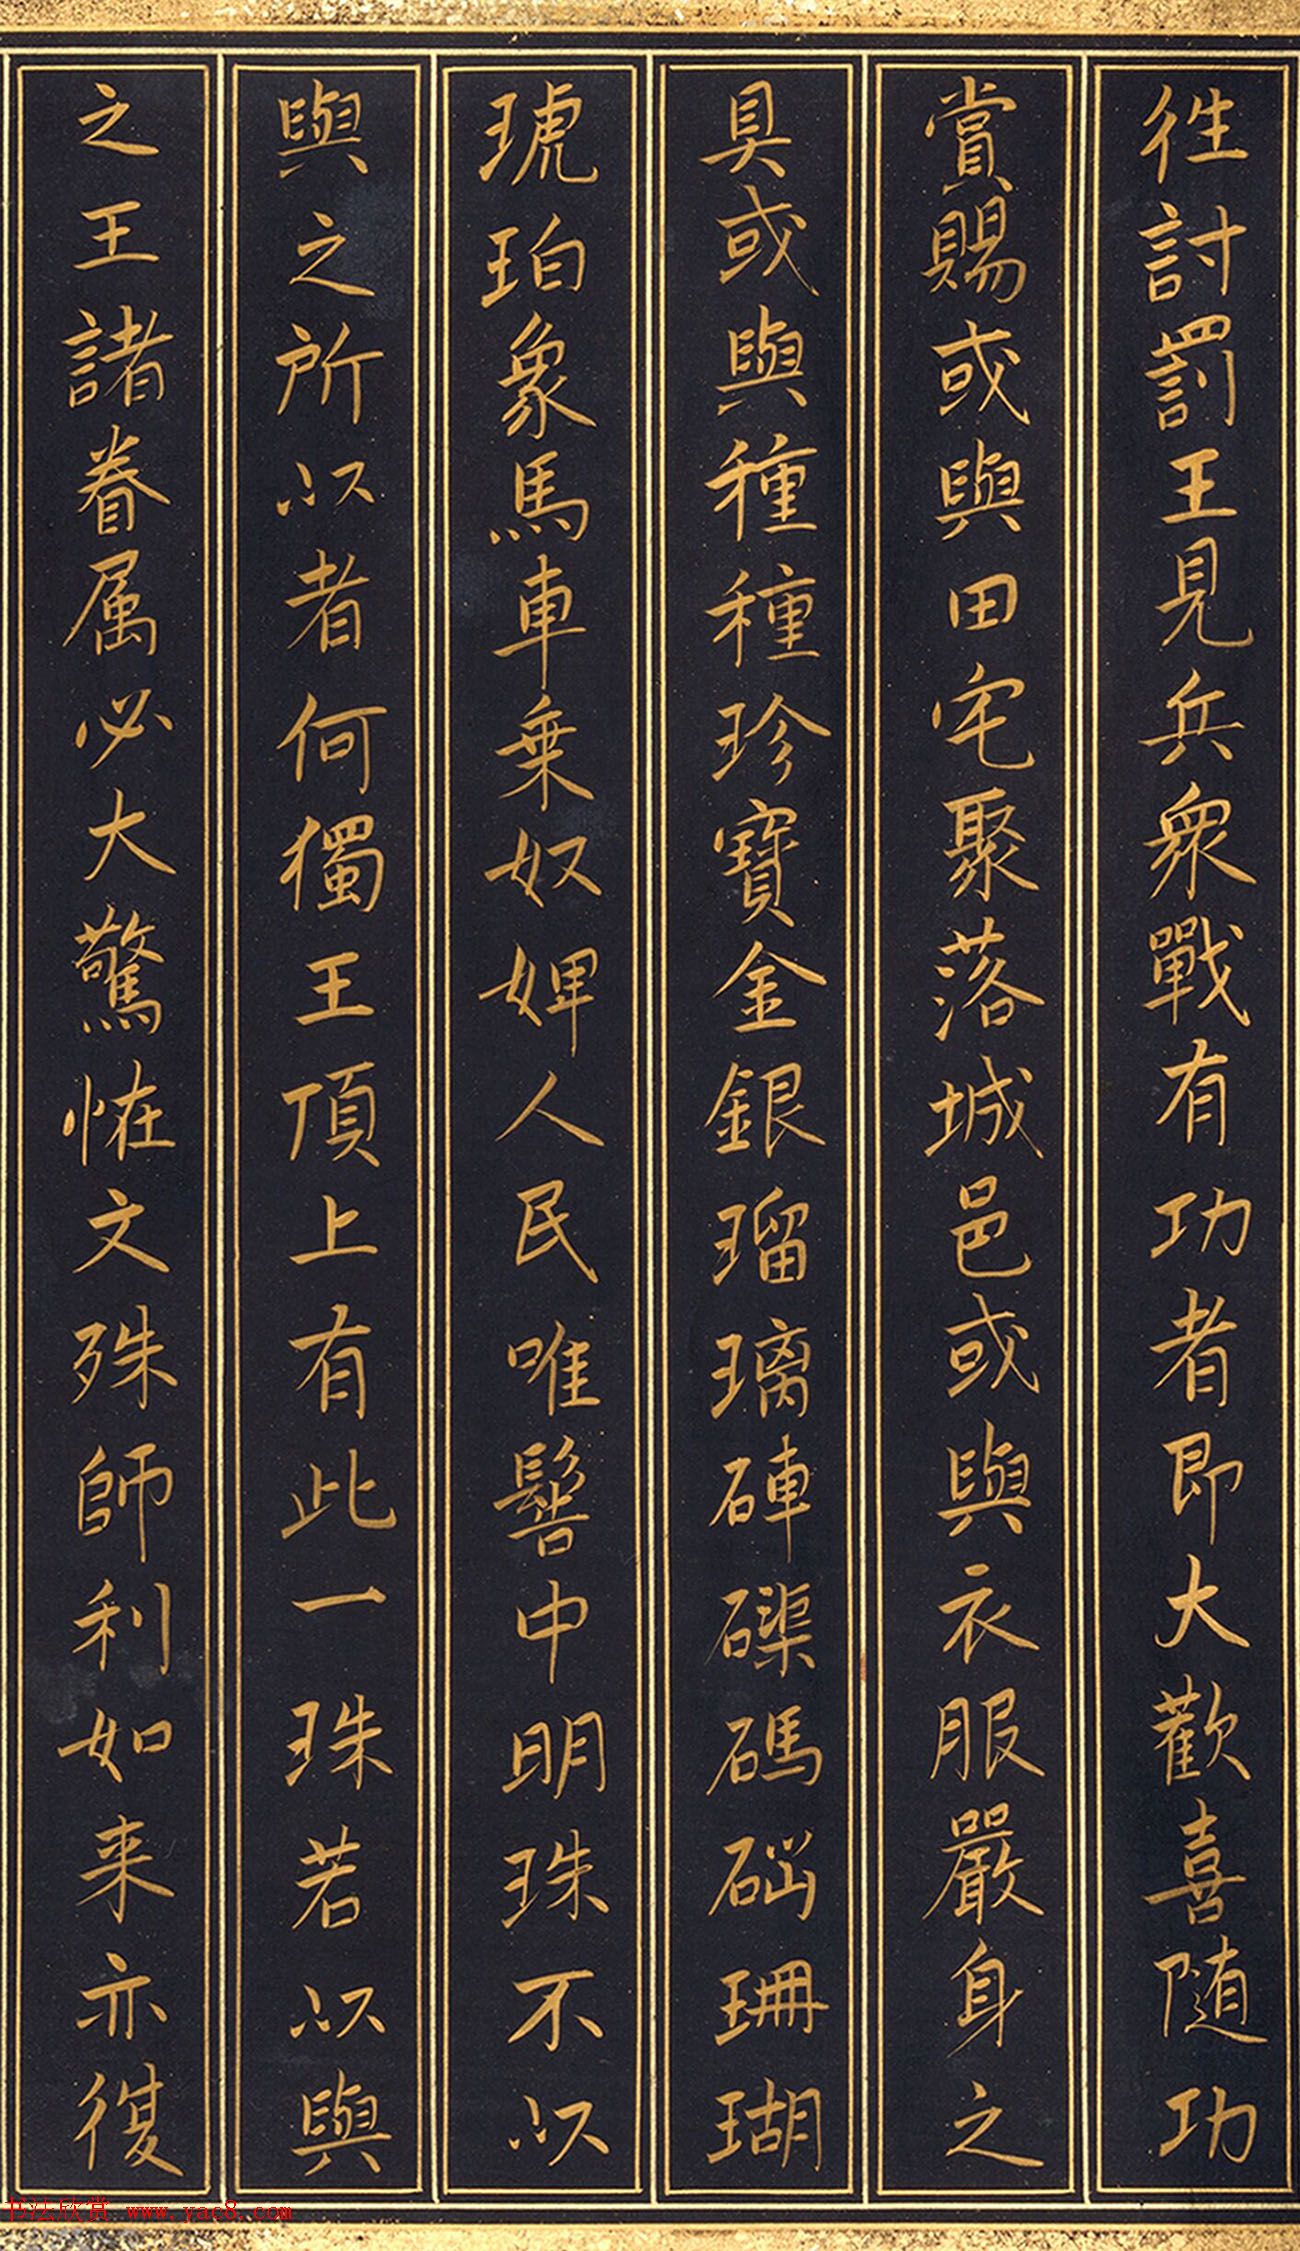 徃討罰王見兵衆戰有功者即大歡喜随功
賞賜或與田宅聚落城邑或與衣服嚴身之
具或與種種珍寶金銀瑠璃硨磲碼碯珊瑚
琥珀象馬車乗奴婢人民唯髻中明珠不以
與之所以者何獨王頂上有此一珠若以與
之王諸眷属必大驚恠文殊師利如来亦復
书法欣赏 www.yac8.com